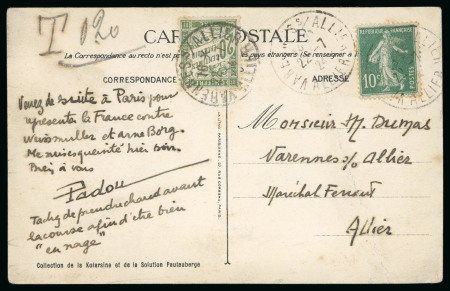 T 020
CARTE POSTALE
La Correspondance au recto n'est pas acceptée par tous les pays étrangers (Se renseigner à
CORRESPONDANCE
ADRESSE
RÉPUBLIQUE FRANÇAISE
10c
POSTES
VARENNES S/ ALLIER
ALLIER
Venez de suite à Paris pour
représenter la France contre
Weissmuller et Arne Borg.
hier soir.
Bien à vous
Padou
Tachez de prendre chaud avant
la course afin d'être bien
"en nage"
Monsieur M. Dumas
Varennes s/ Allier
Maréchal Ferrant
Allier
Collection de la Kolarsina et de la Solution Pautauberge